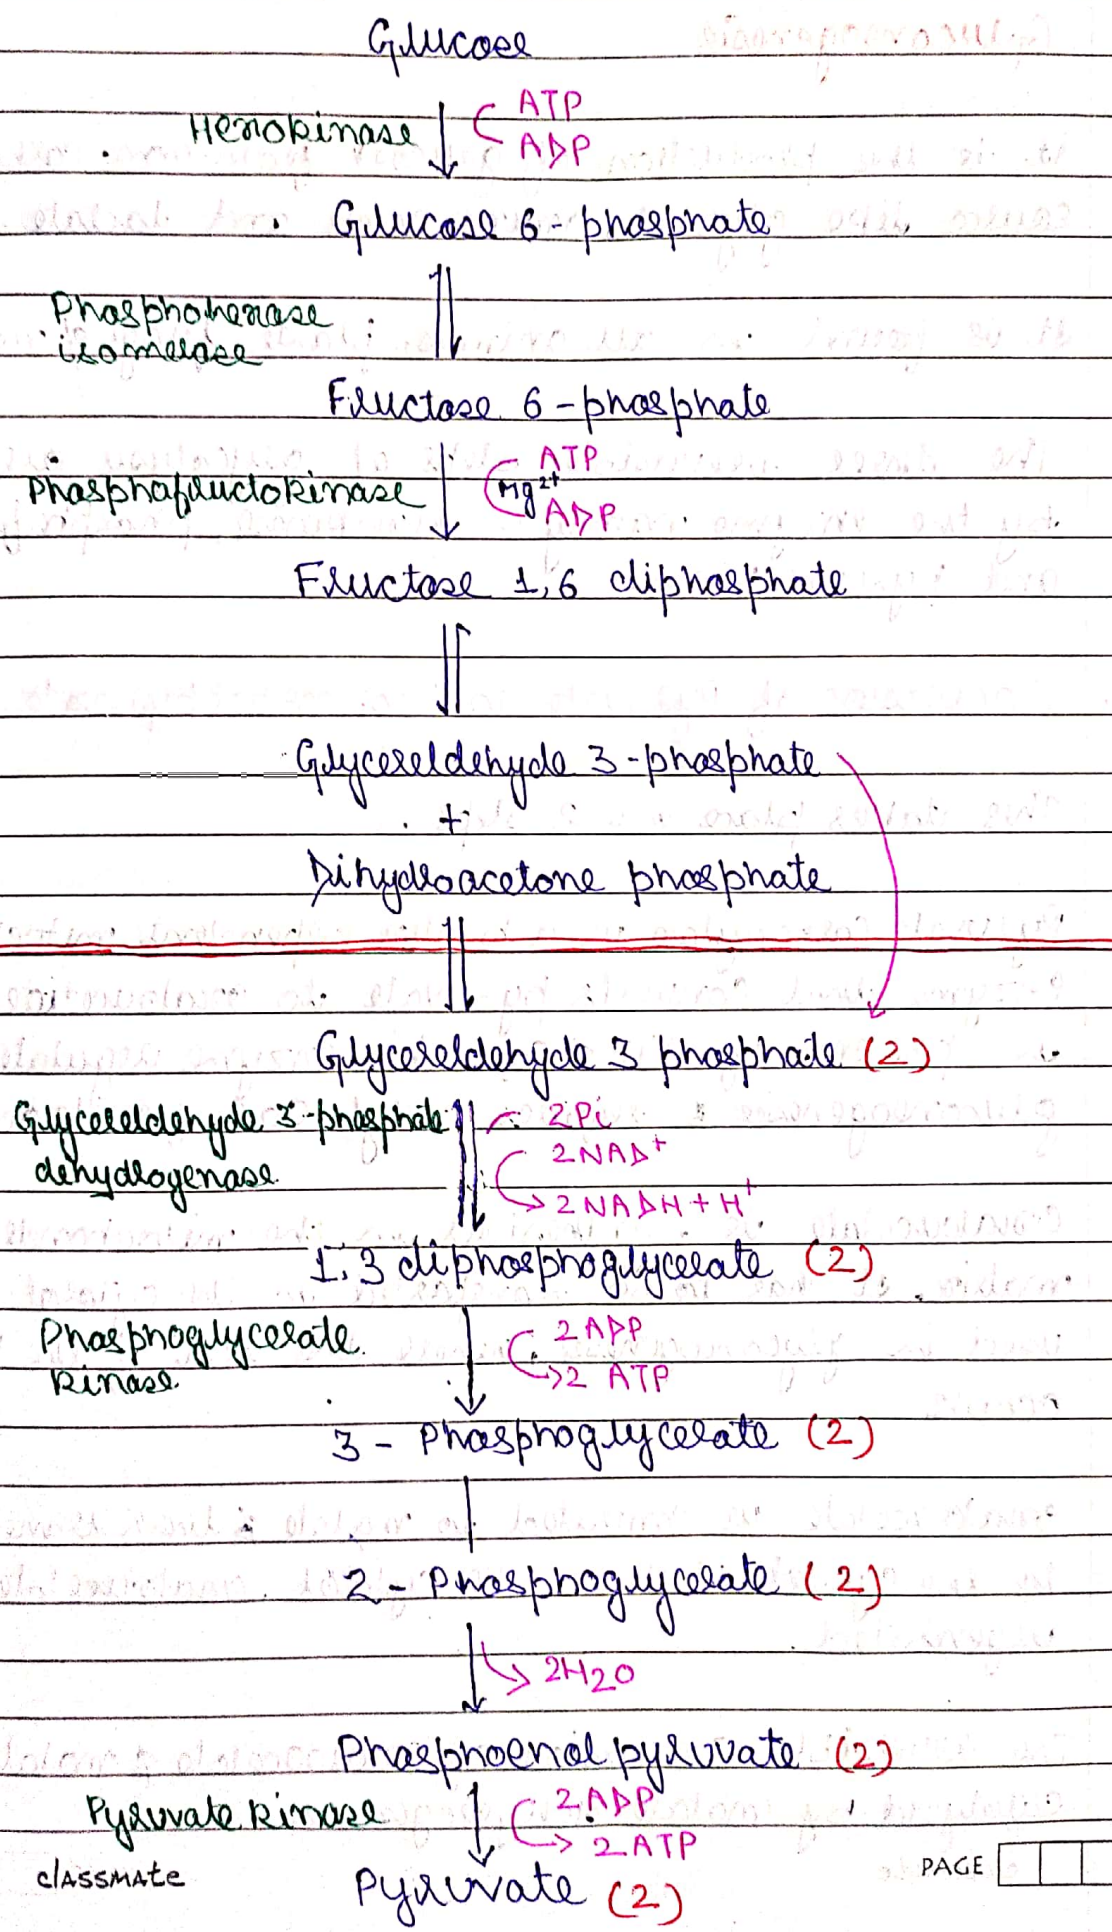 Glucose
ATP
Hexokinase
ADP
Glucose 6-phosphate
Phosphohexose
isomerase
Fructose 6-phosphate
ATP
Phosphofructokinase Mg²⁺
ADP
Fructose 1,6 diphosphate
Glycereldehyde 3-phosphate
+
Dihydroacetone phosphate
Glycereldehyde 3 phosphate (2)
Glycereldehyde 3-phosphate 2Pi
2NAD⁺
dehydrogenase
2NADH + H⁺
1,3 diphosphoglycerate (2)
Phosphoglycerate 2ADP
kinase 2 ATP
3-Phosphoglycerate (2)
2-Phosphoglycerate (2)
2H2O
Phosphoenol pyruvate (2)
Pyruvate kinase 2ADP
2ATP
classmate
PAGE
Pyruvate (2)